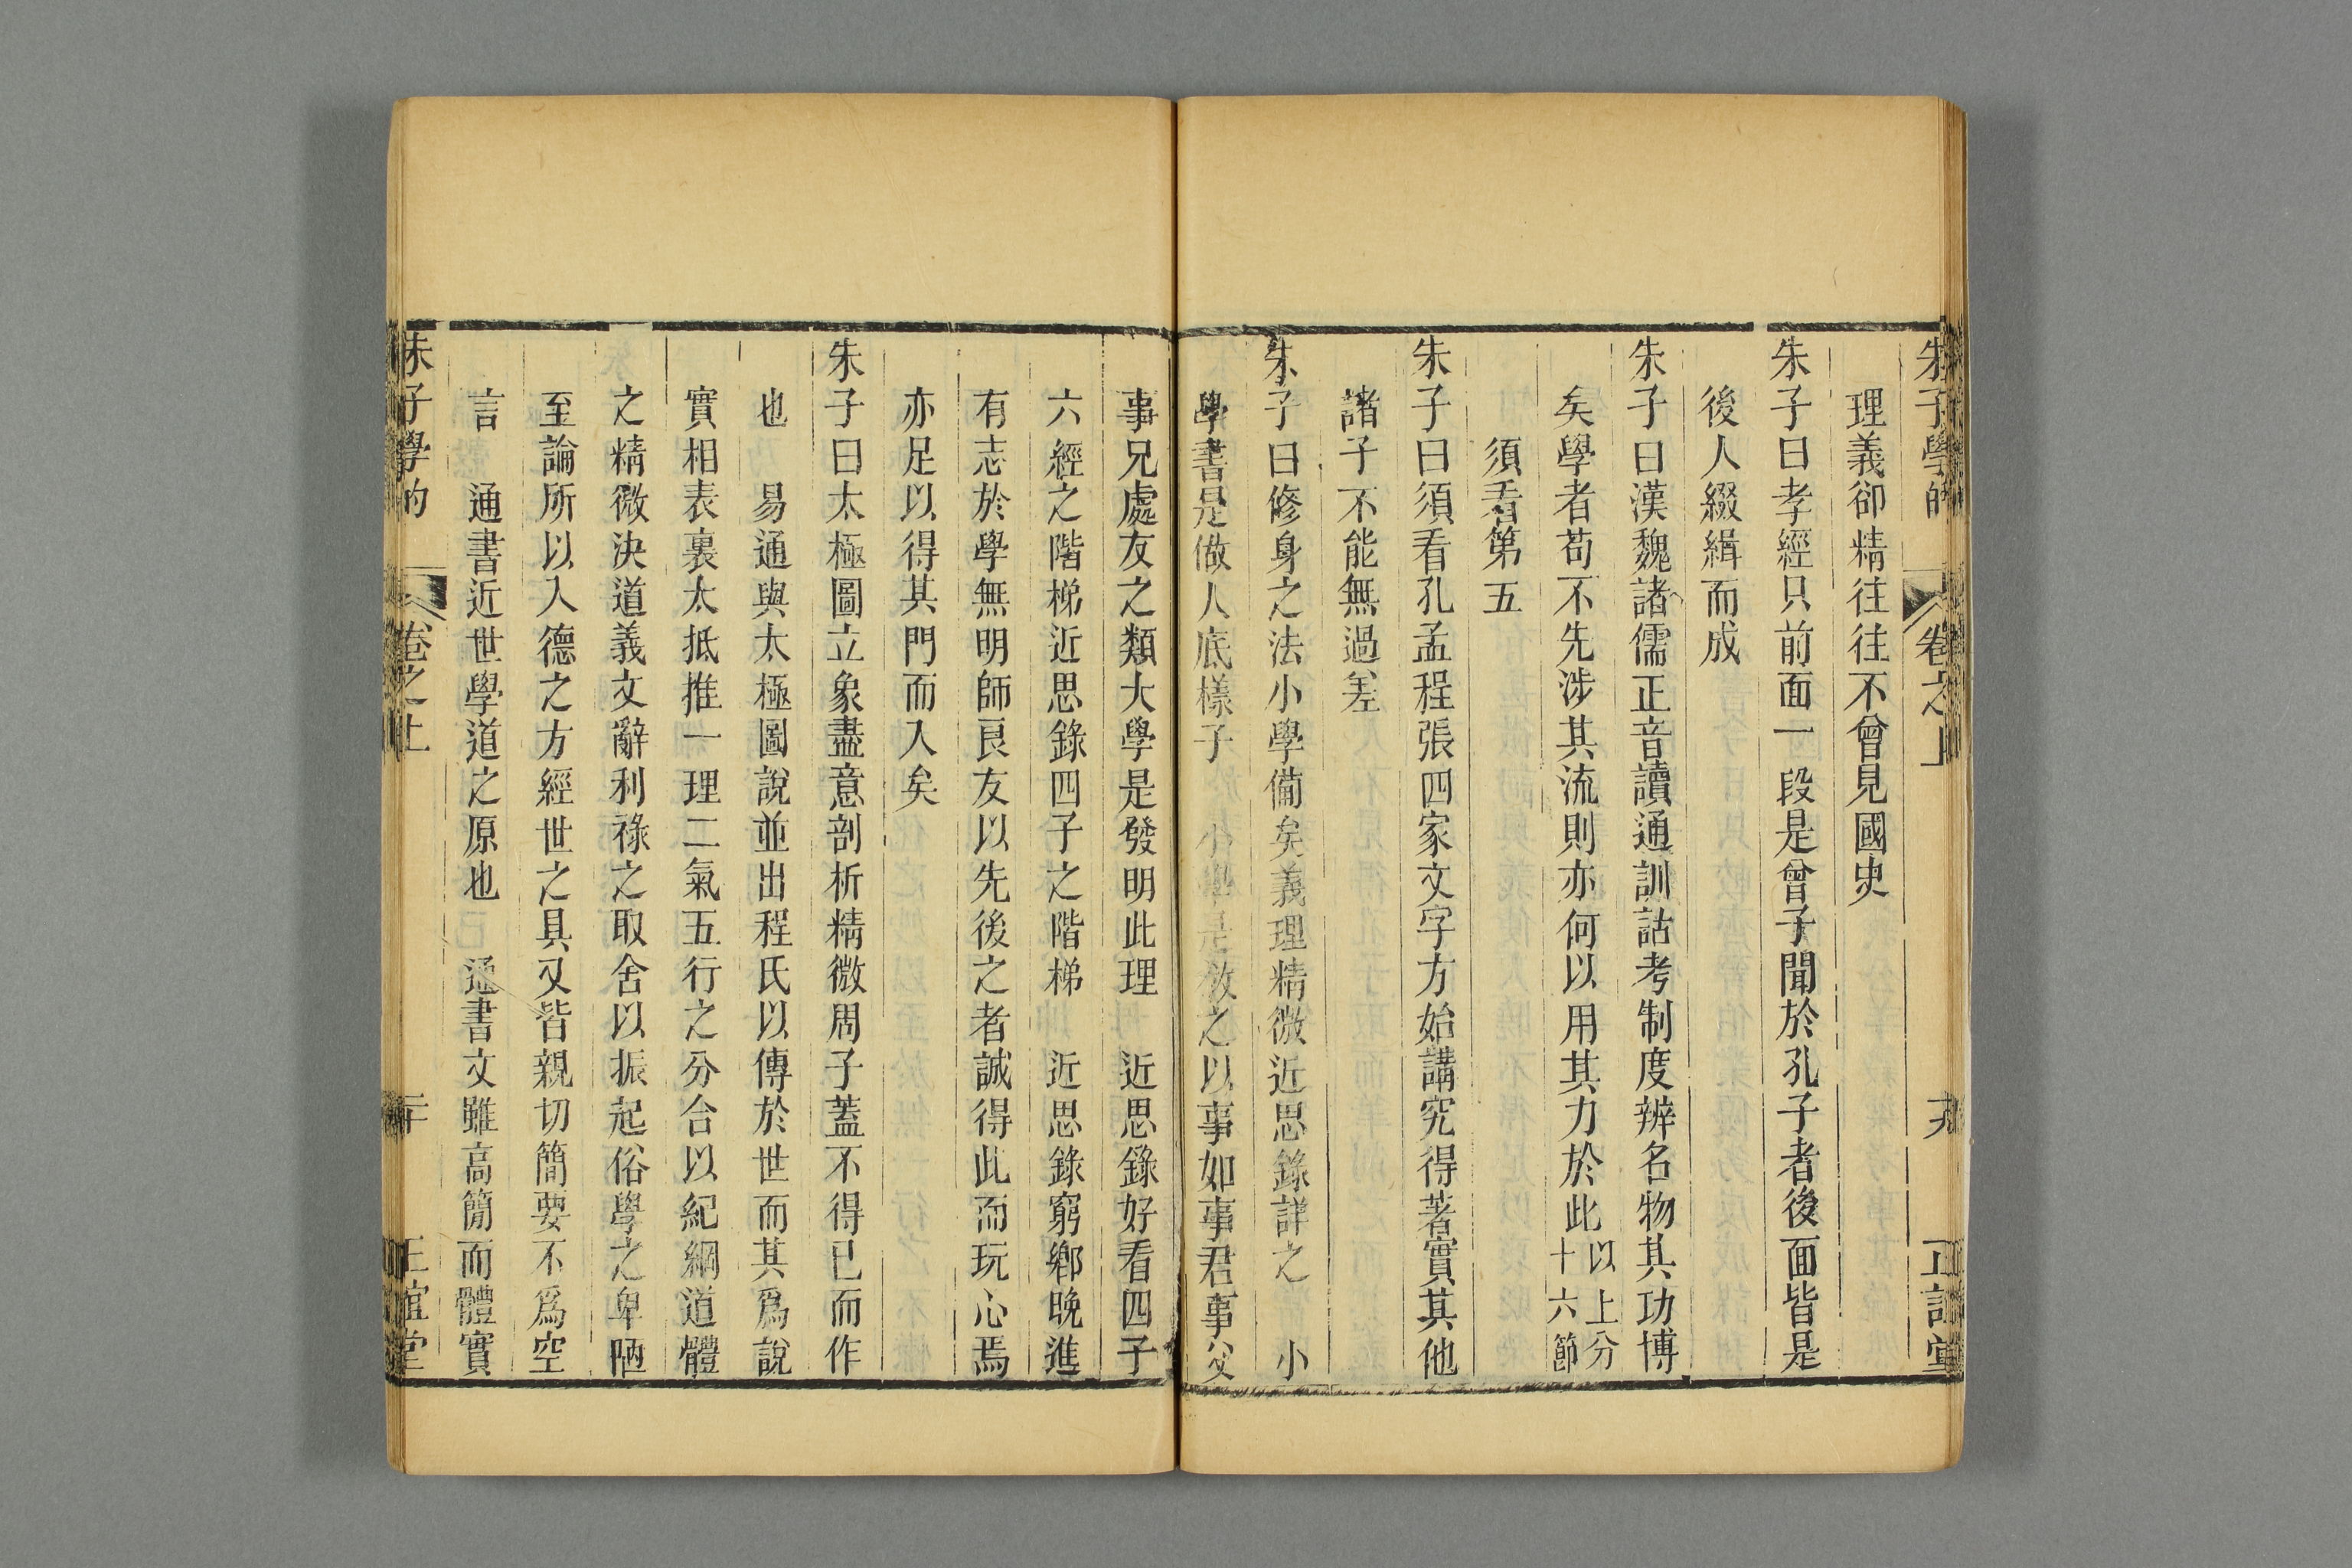 朱子學的 卷之上 十九 正誼堂
理義卻精往往不曾見國史
朱子曰孝經只前面一段是曾子聞於孔子者後面皆是
後人綴緝而成
朱子曰漢魏諸儒正音讀通訓詁考制度辨名物其功博
矣學者苟不先涉其流則亦何以用其力於此以上分
十六節
須看第五
朱子曰須看孔孟程張四家文字方始講究得著實其他
諸子不能無過差
朱子曰修身之法小學備矣義理精微近思錄詳之 小
學書是做人底樣子 小學是教之以事如事君事父
事兄處友之類大學是發明此理 近思錄好看四子
六經之階梯近思錄四子之階梯 近思錄窮鄉晚進
有志於學無明師良友以先後之者誠得此而玩心焉
亦足以得其門而入矣
朱子曰太極圖立象盡意剖析精微周子蓋不得已而作
也 易通與太極圖說並出程氏以傳於世而其爲說
實相表裏太抵推一理二氣五行之分合以紀綱道體
之精微決道義文辭利祿之取舍以振起俗學之卑陋
至論所以入德之方經世之具又皆親切簡要不爲空
言 通書近世學道之原也 通書文雖高簡而體實
朱子學的 卷之上 二十 正誼堂